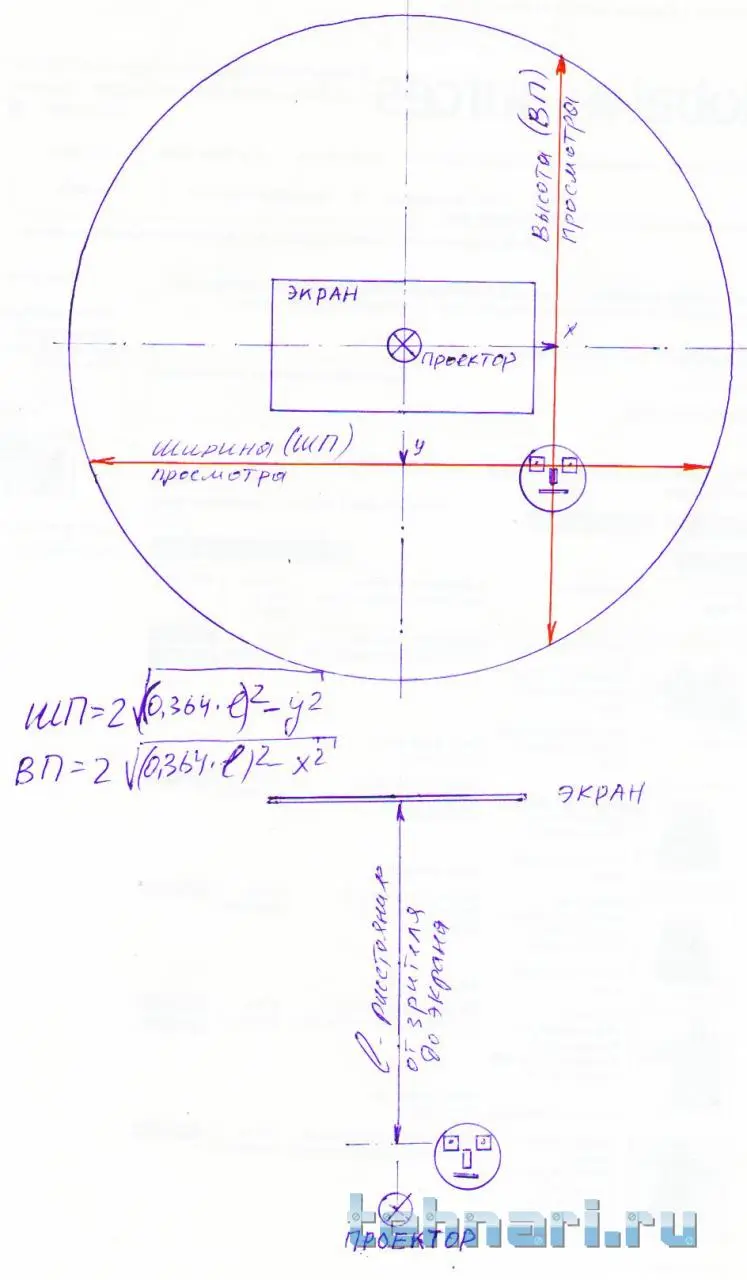 Высота (ВП)
просмотра
ЭКРАН
x
проектор
Ширина (ШП)
y
просмотра
ШП=2√(0,364·ℓ)²-y²
ВП=2√(0,364·ℓ)²-x²
ЭКРАН
ℓ - расстояние
от зрителя
до экрана
tehnari.ru
ПРОЕКТОР